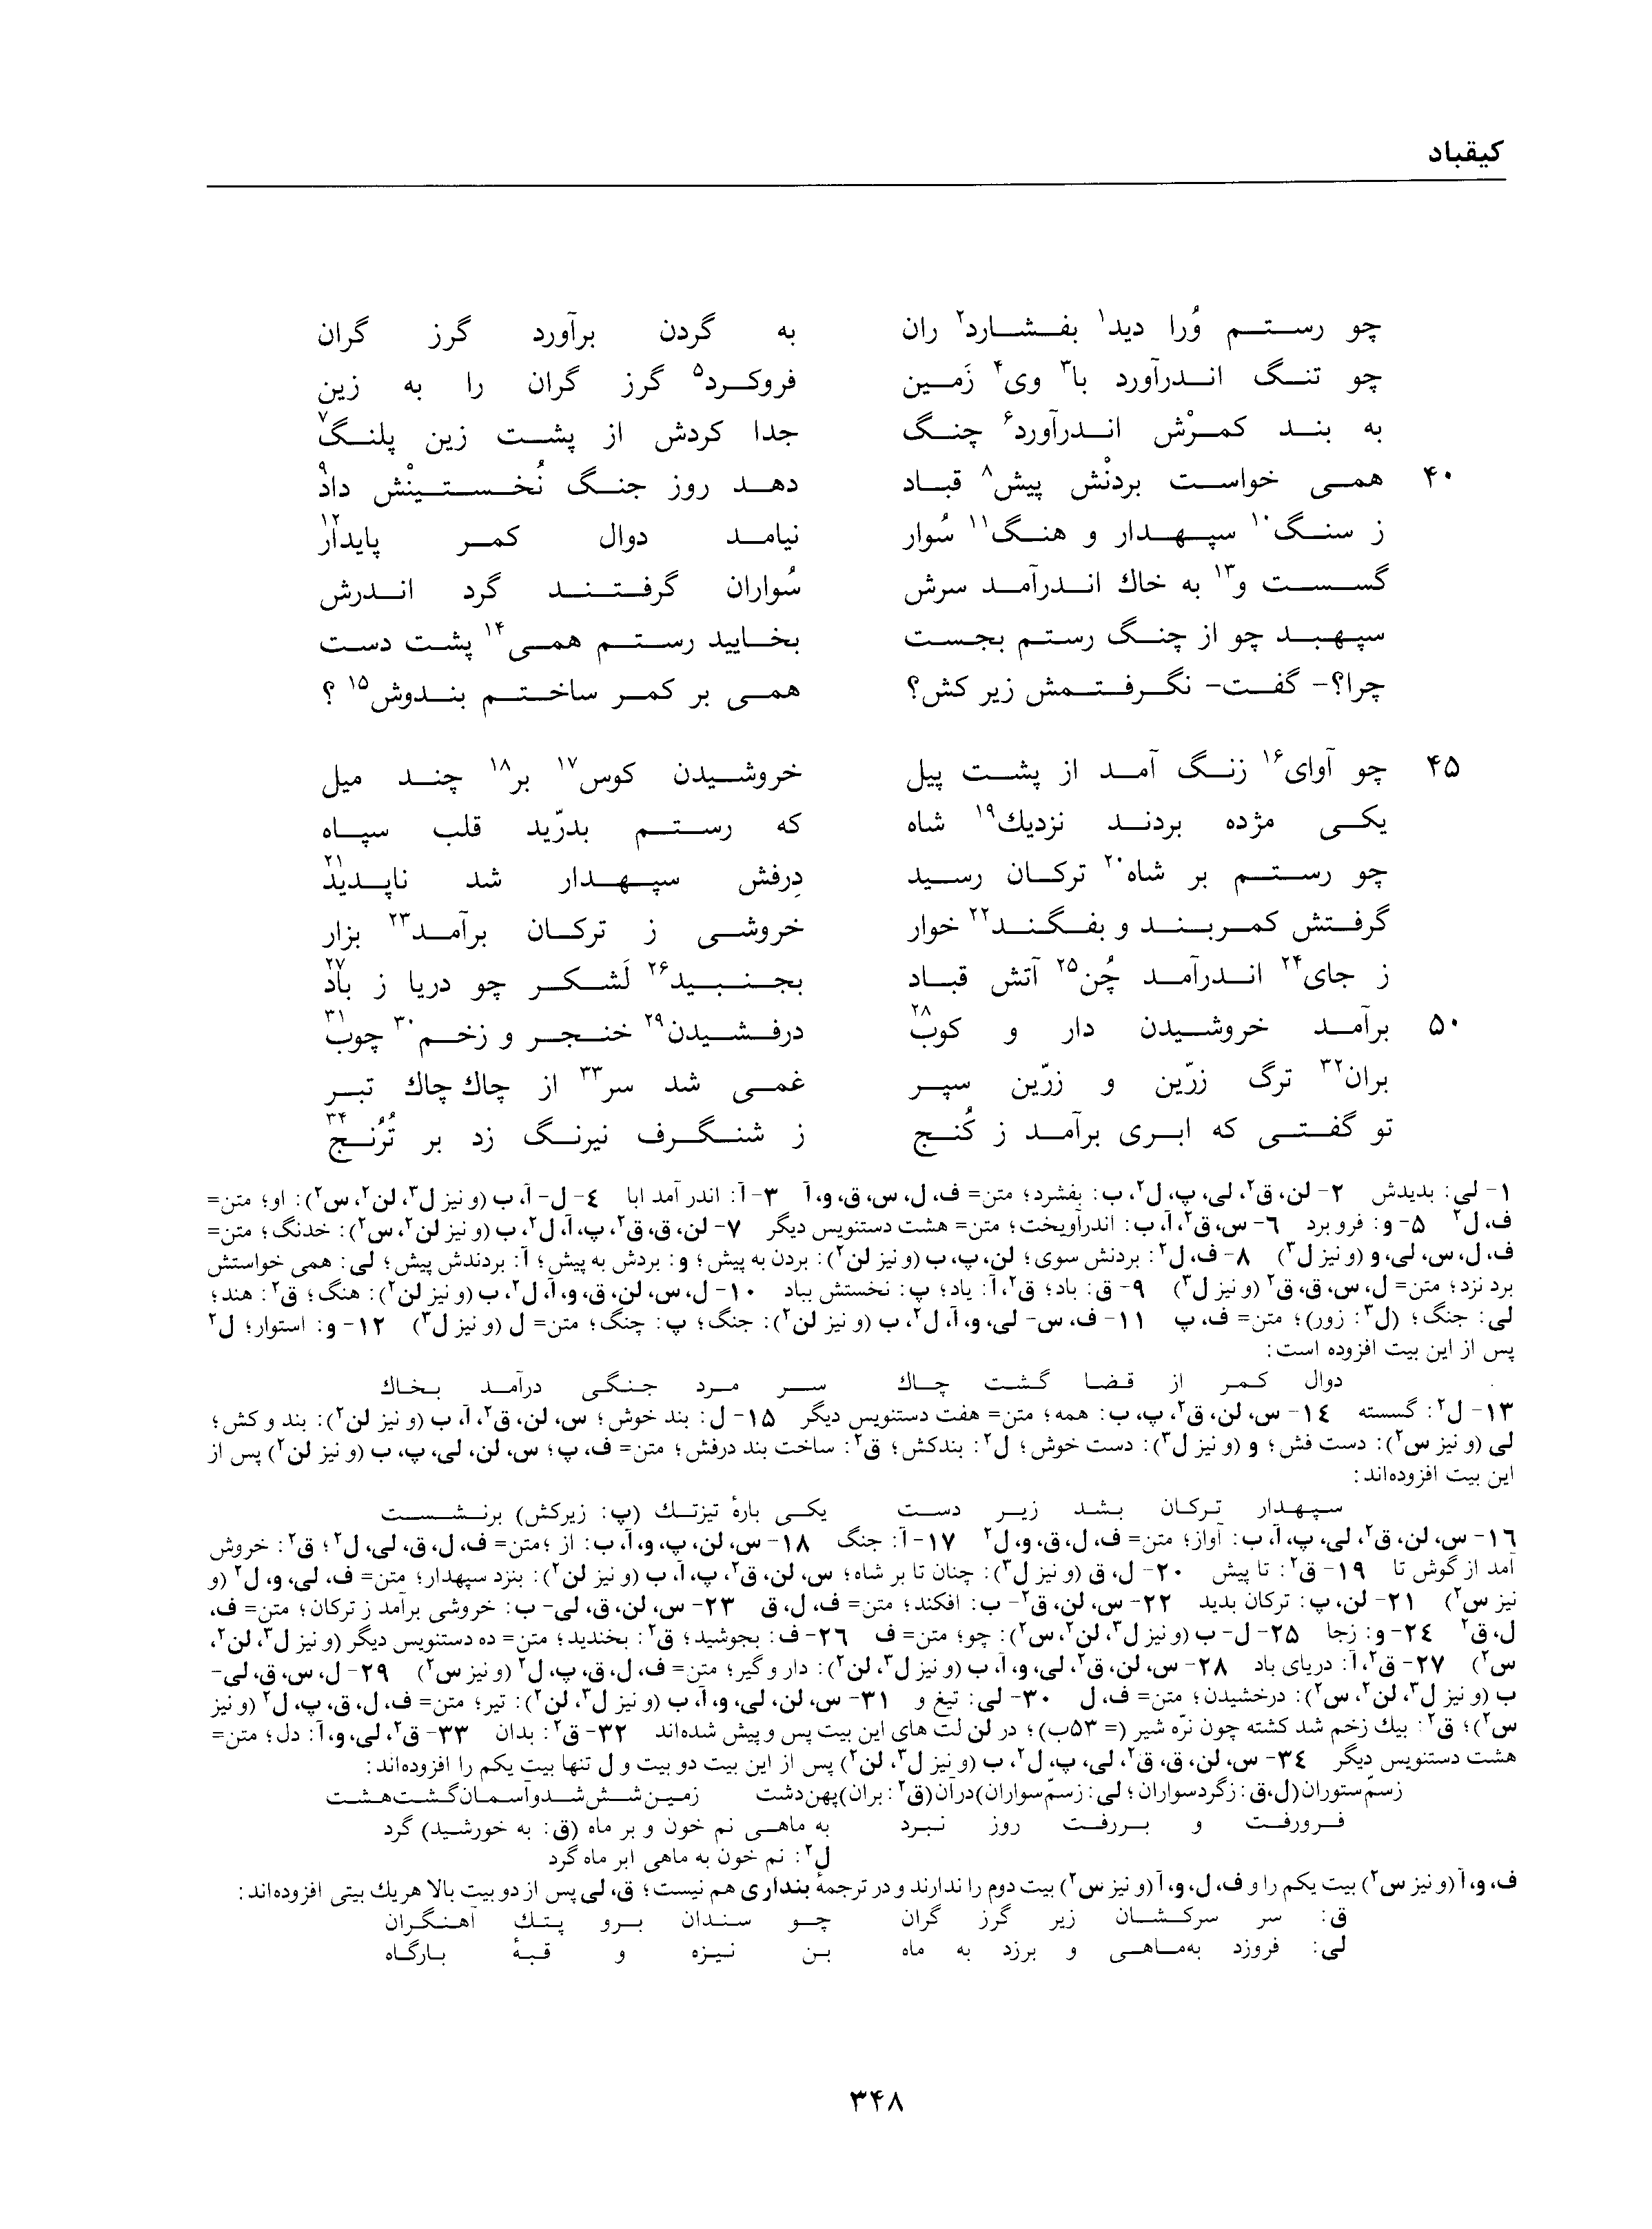 کیقباد
چو رستم وُرا دید۱ بفشارد۲ ران به گردن برآورد گرز گران
چو تنگ اندرآورد با۳ وی۴ زَمین فروکرد۵ گرز گران را به زین
به بند کمرْش اندرآورد۶ چنگ جدا کردش از پشت زین پلنگ۷
۴۰ همی خواست بردنْش پیش۸ قباد دهد روز جنگ نُخستینْش دادْ۹
ز سنگ۱۰ سپهدار و هنگ۱۱ سُوار نیامد دوال کمر پایدار۱۲
گسست و۱۳ به خاك اندرآمد سرش سُواران گرفتند گرد اندرش
سپهبد چو از چنگ رستم بجست بخایید رستم همی۱۴ پشت دست
چرا؟- گفت- نگرفتمش زیر کش؟ همی بر کمر ساختم بندوش۱۵ ؟
۴۵ چو آوای۱۶ زنگ آمد از پشت پیل خروشیدن کوس۱۷ بر۱۸ چند میل
یکی مژده بردند نزدیك۱۹ شاه که رستم بدرّید قلب سپاه
چو رستم بر شاه۲۰ ترکان رسید دِرفش سپهدار شد ناپدید۲۱
گرفتش کمربند و بفگند۲۲ خوار خروشی ز ترکان برآمد۲۳ بزار
ز جای۲۴ اندرآمد چُن۲۵ آتش قباد بجنبید۲۶ لَشکر چو دریا ز باد۲۷
۵۰ برآمد خروشیدن دار و کوب۲۸ درفشیدن۲۹ خنجر و زخم۳۰ چوب۳۱
بران۳۲ ترگ زرّین و زرّین سپر غمی شد سر۳۳ از چاك چاك تبر
تو گفتی که ابری برآمد ز کُنج ز شنگرف نیرنگ زد بر تُرُنج۳۴
۱- لی: بدیدش ۲- لن، ق۲، لی، پ، ل۲، ب: بفشرد؛ متن= ف، ل، س، ق، و، آ ۳- آ: اندر آمد ابا ۴- ل- آ، ب (و نیز ل۳، لن۲، س۲): او؛ متن=
ف، ل۲ ۵- و: فرو برد ۶- س، ق۲، آ، ب: اندرآویخت؛ متن= هشت دستنویس دیگر ۷- لن، ق، ق۲، پ، آ، ل۲، ب (و نیز لن۲، س۲): خدنگ؛ متن=
ف، ل، س، لی، و (و نیز ل۳) ۸- ف، ل۲: بردنش سوی؛ لن، پ، ب (و نیز لن۲): بردن به پیش؛ و: بردش به پیش؛ آ: بردندش پیش؛ لی: همی خواستش
برد نزد؛ متن= ل، س، ق، ق۲ (و نیز ل۳) ۹- ق: باد؛ ق۲، آ: یاد؛ پ: نخستش بباد ۱۰- ل، س، لن، ق، و، آ، ل۲، ب (و نیز لن۲): هنگ؛ ق۲: هند؛
لی: جنگ؛ (ل۳: زور)؛ متن= ف، پ ۱۱- ف، س- لی، و، آ، ل۲، ب (و نیز لن۲): جنگ؛ پ: چنگ؛ متن= ل (و نیز ل۳) ۱۲- و: استوار؛ ل۲
پس از این بیت افزوده است:
دوال کمر از قضا گشت چاك سر مرد جنگی درآمد بخاك
۱۳- ل۲: گسسته ۱۴- س، لن، ق۲، پ، ب: همه؛ متن= هفت دستنویس دیگر ۱۵- ل: بند خوش؛ س، لن، ق۲، آ، ب (و نیز لن۲): بند و کش؛
لی (و نیز س۲): دست فش؛ و (و نیز ل۳): دست خوش؛ ل۲: بندکش؛ ق۲: ساخت بند درفش؛ متن= ف، پ؛ س، لن، لی، پ، ب (و نیز لن۲) پس از
این بیت افزوده‌اند:
سپهدار ترکان بشد زیر دست یکی بارهٔ تیزتك (پ: زیرکش) برنشست
۱۶- س، لن، ق۲، لی، پ، آ، ب: آواز؛ متن= ف، ل، ق، و، ل۲ ۱۷- آ: جنگ ۱۸- س، لن، پ، و، آ، ب: از ؛متن= ف، ل، ق، لی، ل۲؛ ق۲: خروش
آمد از گوش تا ۱۹- ق۲: تا پیش ۲۰- ل، ق (و نیز ل۳): چنان تا بر شاه؛ س، لن، ق۲، پ، آ، ب (و نیز لن۲): بنزد سپهدار؛ متن= ف، لی، و، ل۲ (و
نیز س۲) ۲۱- لن، پ: ترکان بدید ۲۲- س، لن، ق۲- ب: افکند؛ متن= ف، ل، ق ۲۳- س، لن، ق، لی- ب: خروشی برآمد ز ترکان؛ متن= ف،
ل، ق۲ ۲۴- و: زجا ۲۵- ل- ب (و نیز ل۳، لن۲، س۲): چو؛ متن= ف ۲۶- ف: بجوشید؛ ق۲: بخندید؛ متن= ده دستنویس دیگر (و نیز ل۳، لن۲،
س۲) ۲۷- ق۲، آ: دریای باد ۲۸- س، لن، ق۲، لی، و، آ، ب (و نیز ل۳، لن۲): دار و گیر؛ متن= ف، ل، ق، پ، ل۲ (و نیز س۲) ۲۹- ل، س، ق، لی-
ب (و نیز ل۳، لن۲، س۲): درخشیدن؛ متن= ف، ل ۳۰- لی: تیغ و ۳۱- س، لن، لی، و، آ، ب (و نیز ل۳، لن۲): تیر؛ متن= ف، ل، ق، پ، ل۲ (و نیز
س۲)؛ ق۲: بیك زخم شد کشته چون نرّه شیر (= ۵۳ب)؛ در لن لت های این بیت پس و پیش شده‌اند ۳۲- ق۲: بدان ۳۳- ق۲، لی، و، آ: دل؛ متن=
هشت دستنویس دیگر ۳۴- س، لن، ق، ق۲، لی، پ، ل۲، ب (و نیز ل۳، لن۲) پس از این بیت دو بیت و ل تنها بیت یکم را افزوده‌اند:
زسمّ ستوران (ل، ق: زگرد سواران؛ لی: زسمّ سواران) درآن (ق۲: بران) پهن دشت زمین شش شد و آسمان گشت هشت
فرورفت و بررفت روز نبرد به ماهی نم خون و بر ماه (ق: به خورشید) گرد
ل۲: نم خون به ماهی ابر ماه گرد
ف، و، آ (و نیز س۲) بیت یکم را و ف، ل، و، آ (و نیز س۲) بیت دوم را ندارند و در ترجمهٔ بنداری هم نیست؛ ق، لی پس از دو بیت بالا هریك بیتی افزوده‌اند:
ق: سر سرکشان زیر گرز گران چو سندان برو پتك آهنگران
لی: فروزد به‌ماهی و برزد به ماه بن نیزه و قبهٔ بارگاه
۳۴۸